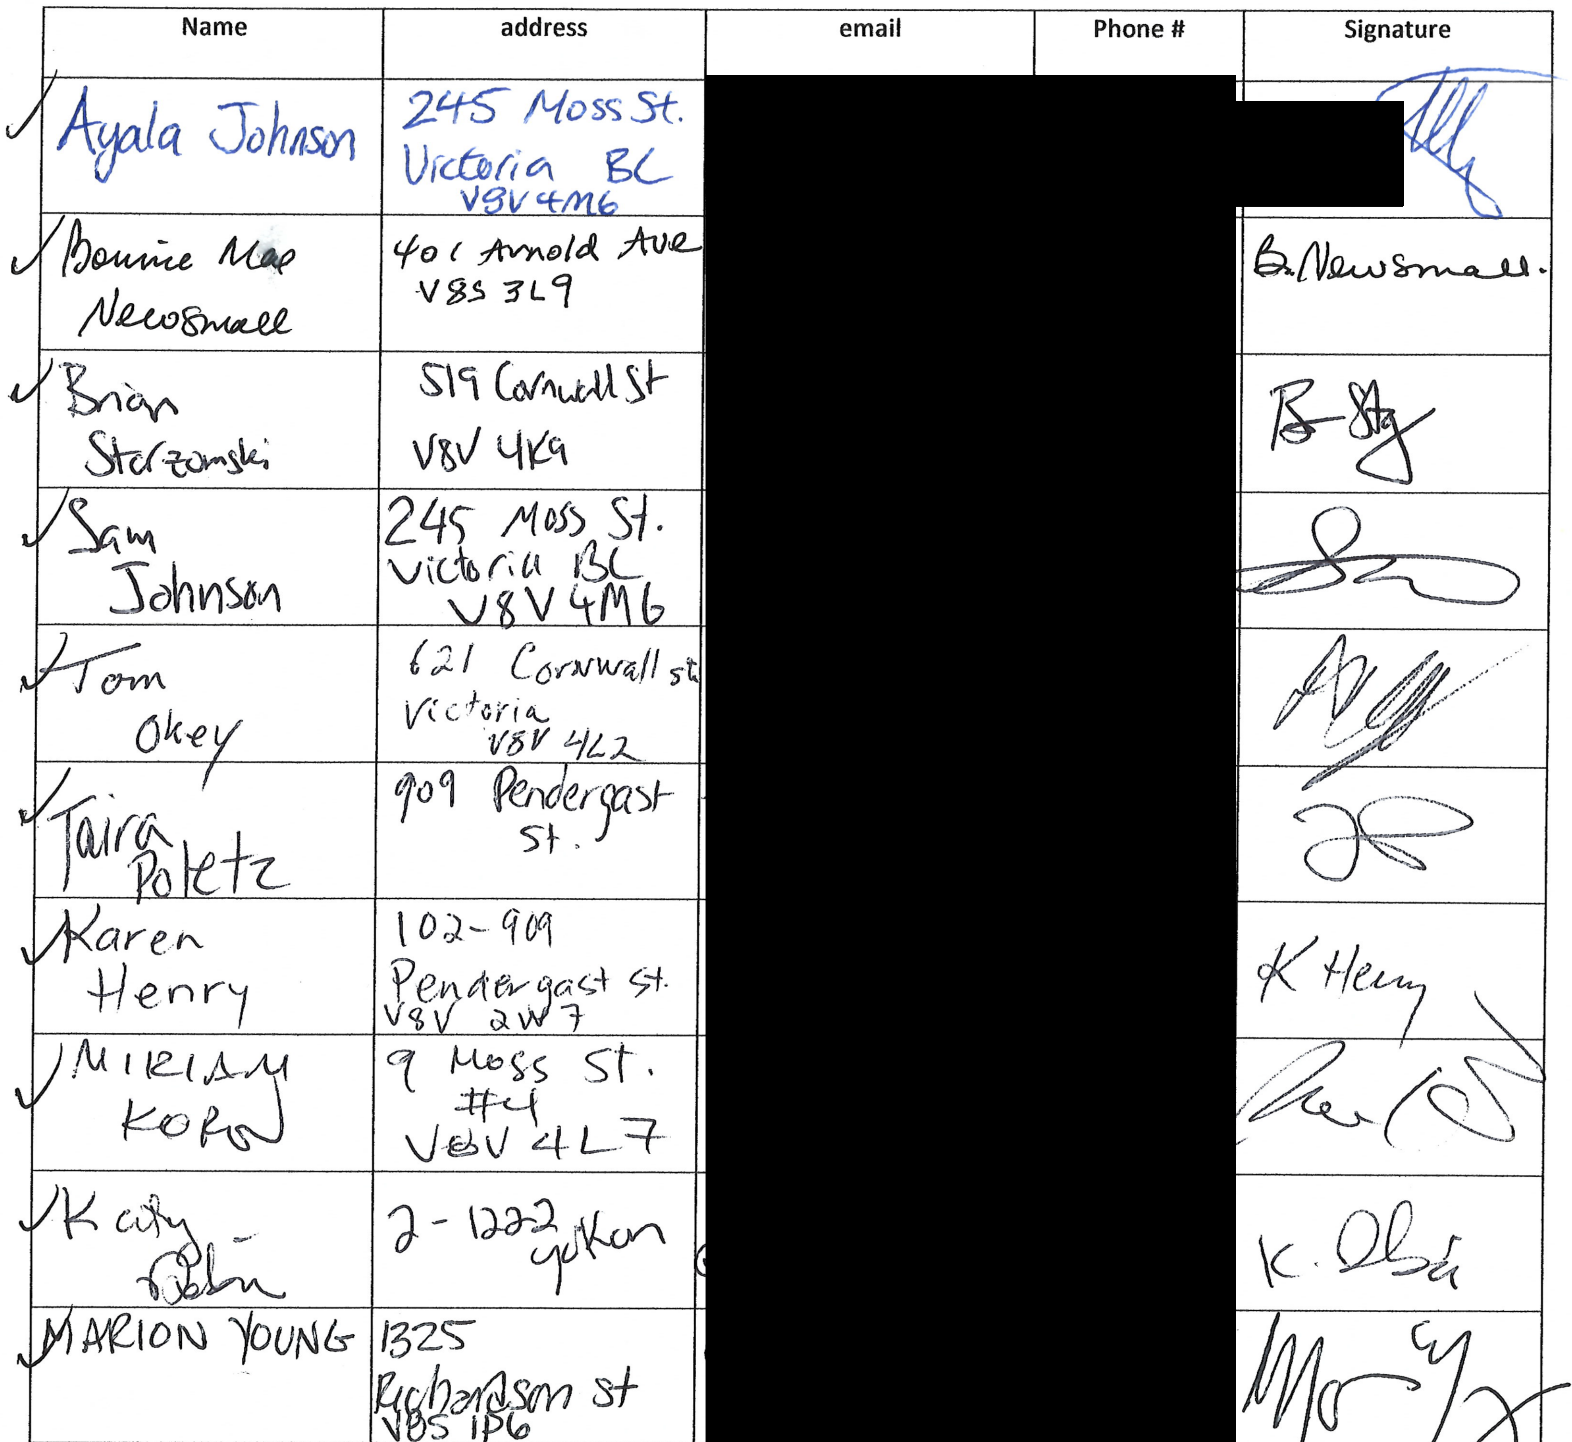 Name address email Phone # Signature
Ayala Johnson
245 Moss St.
Victoria BC
V8V 4M6
Bonnie Mae
Newsmall
401 Arnold Ave
V8S 3L9
B. Newsmall.
Brian
Starzomski
519 Cornwall St
V8V 4K9
Sam
Johnson
245 Moss St.
Victoria BC
V8V 4M6
Tom
Okey
621 Cornwall st
Victoria
V8V 4L2
Taira
Poletz
909 Pendergast
St.
Karen
Henry
102-909
Pendergast St.
V8V 2W7
K Henry
MIRIAM
9 Moss St.
#4
V8V 4L7
Katy
2-1222
yukon
K.
MARION YOUNG
1325
Richardson St
V8S 1P6